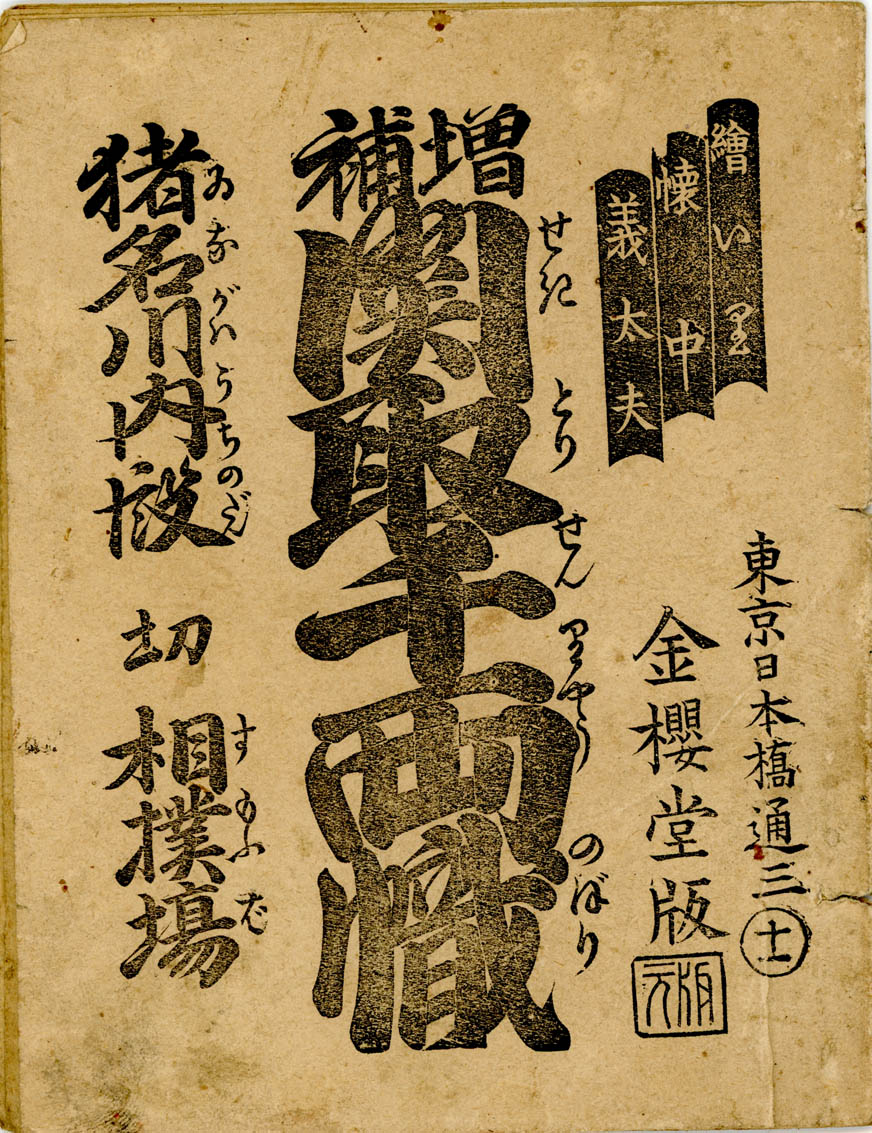 繪い里
懐中
義太夫
東京日本橋通三十一
金櫻堂版
版元
増補
関取千両幟
せき とり せん りやう のぼり
猪名川内段 切 相撲場
ゐながはうちのだん すもふば